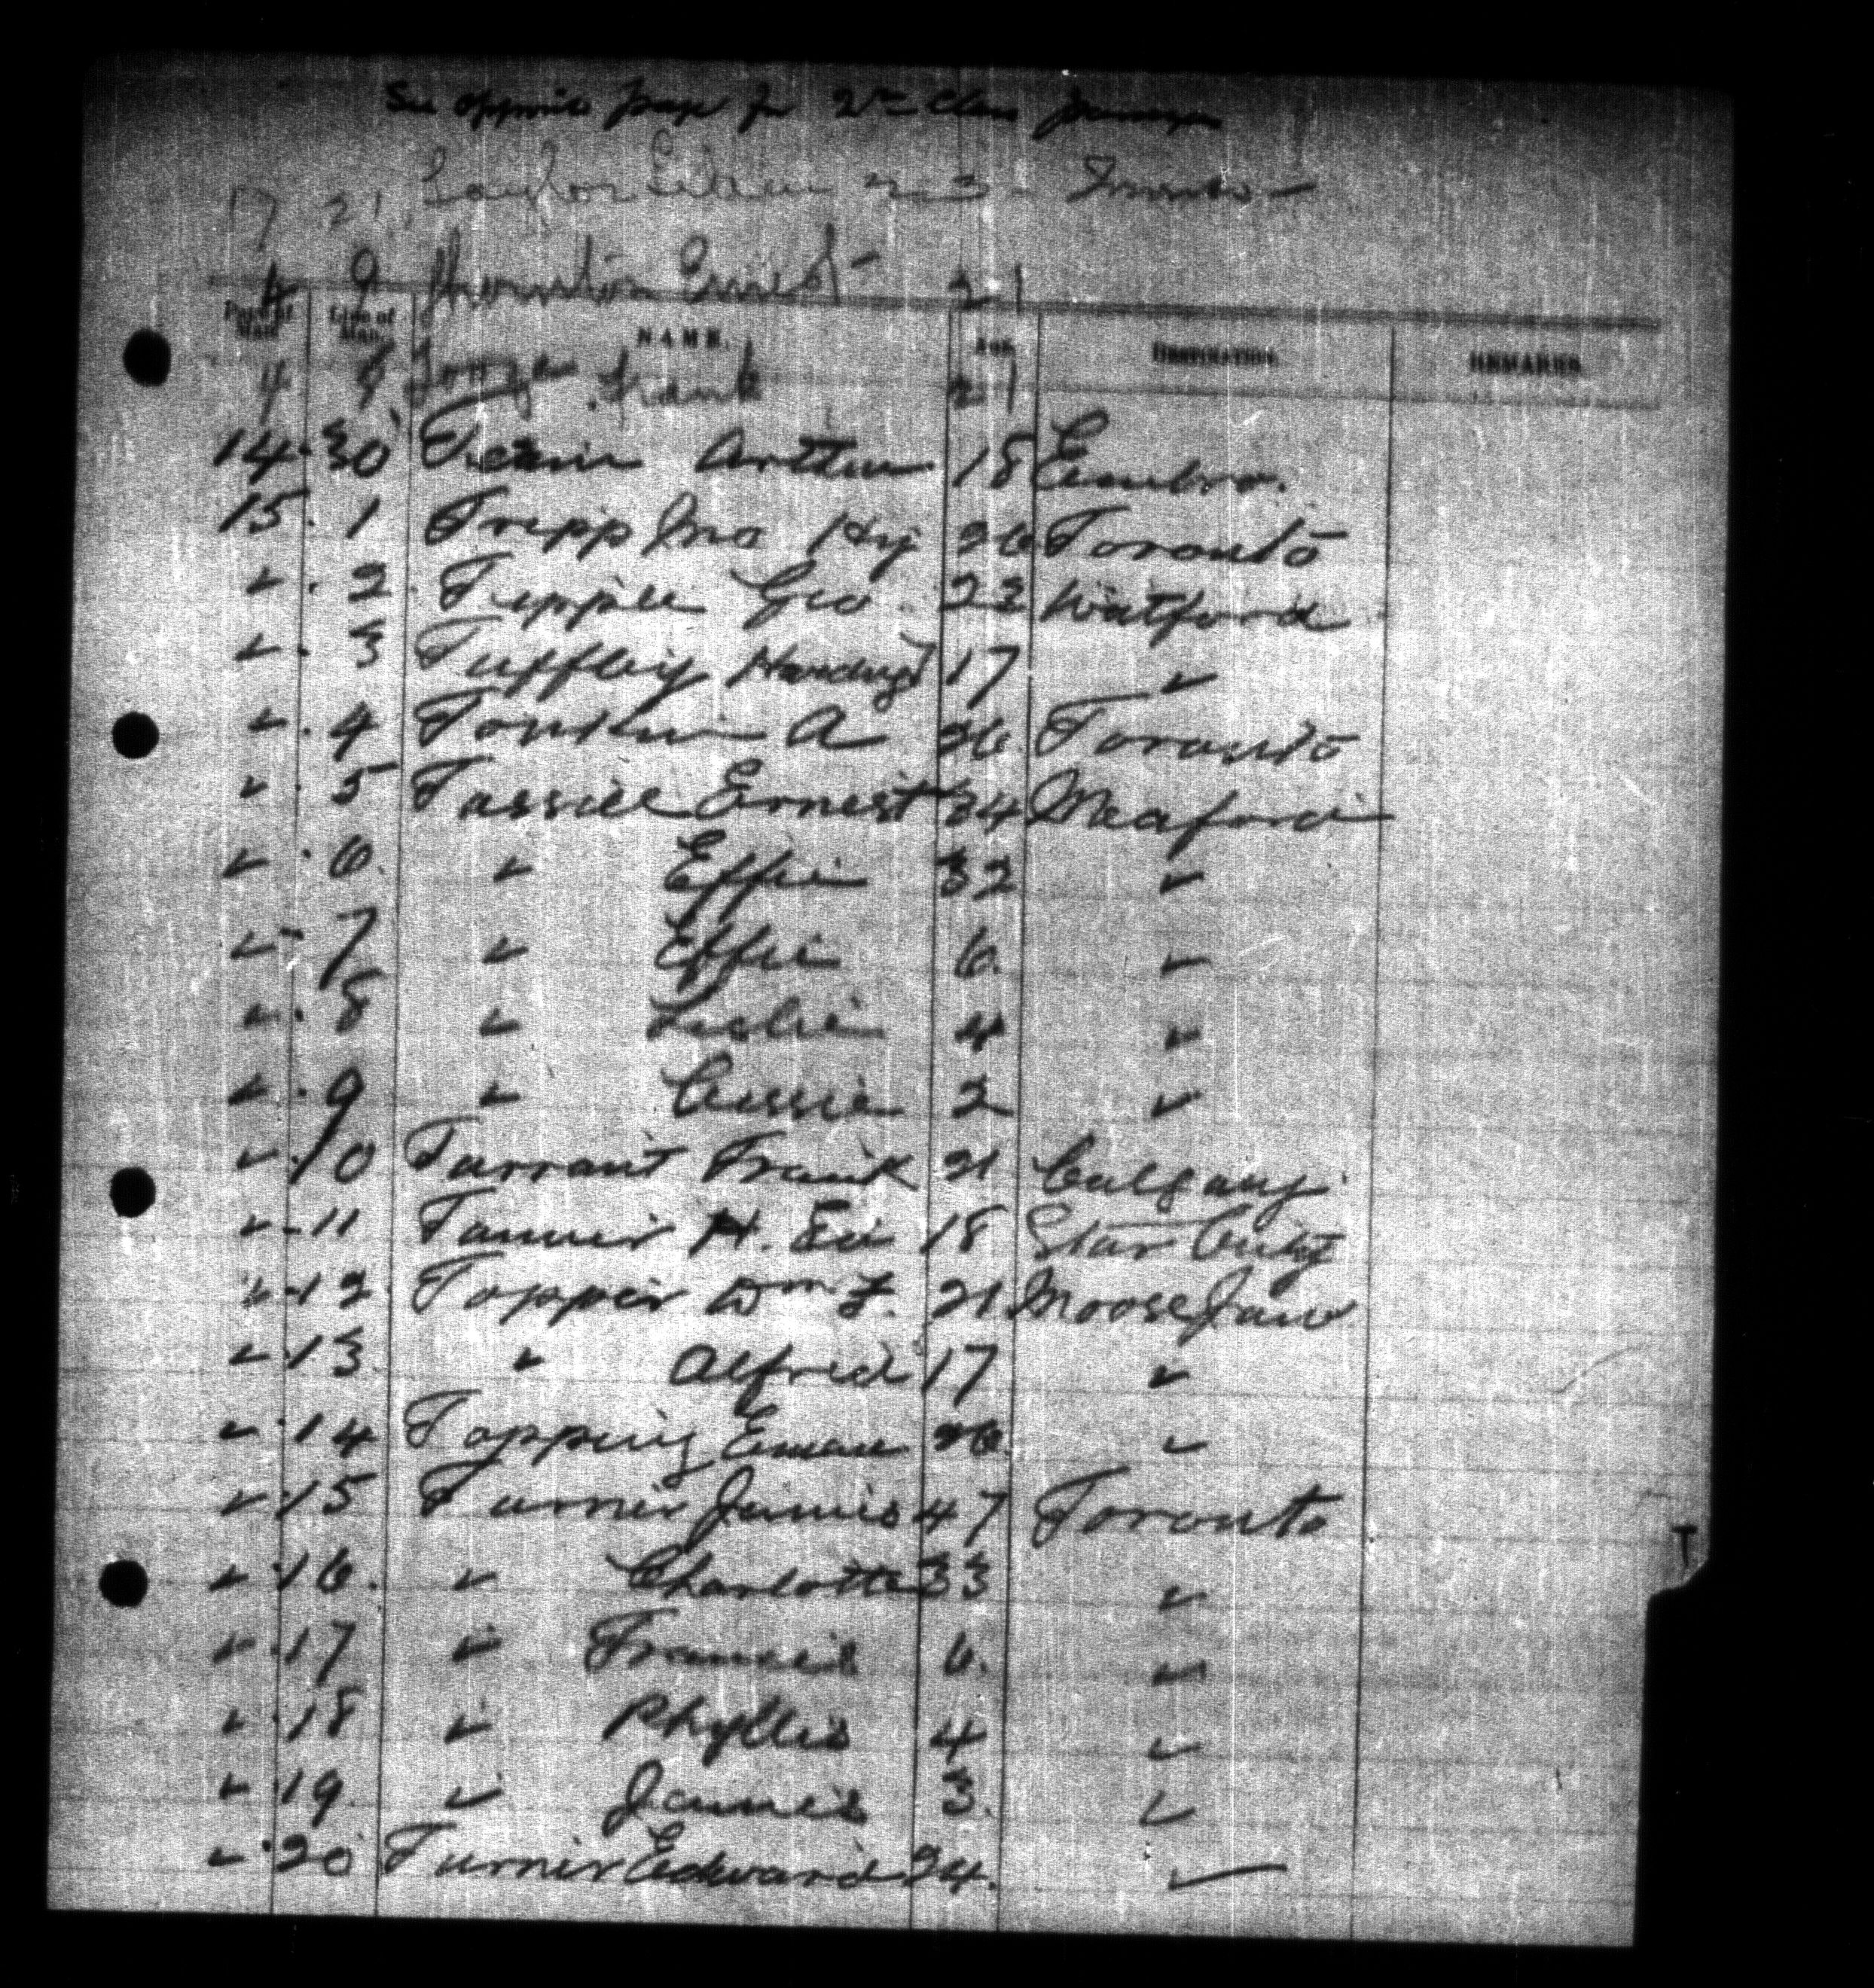 See opposite page for 2nd Class Passengers
17 21 Taylor 23 Toronto -
4 9 Thornton Ernest - 21
Page of Man. Line of Man. NAME. AGE. DESTINATION. REMARKS.
4 9 Frank 21
14. 30 Arthur 18 Embro.
15. 1 Tripp Jno Hy 26 Toronto
✓ . 2. Geo. 23 Watford
✓ . 3 Tuffley 17 ✓
✓ . 4 Tonkin A 26 Toronto
✓ . 5 Tassiee Ernest 34 Meaford
✓ . 6. ✓ Effie 32 ✓
✓ - 7 ✓ Effie 6. ✓
✓ . 8 ✓ Leslie 4 ✓
✓ . 9 ✓ Cissie 2 ✓
✓ . 10 Tarrant Frank 21 Calgary
✓ - 11 Tanner H. 18 Star City
✓ - 12 Topper Wm F. 21 Moose Jaw
✓ . 13. ✓ Alfred 17 ✓
✓ . 14 Topping 26. ✓
✓ . 15 Turner James 47 Toronto
✓ . 16. ✓ Charlotte 33 ✓
✓ . 17 ✓ Francis 6. ✓
✓ . 18 ✓ Phyllis 4 ✓
✓ . 19. ✓ James 3. ✓
✓ . 20 Turner Edward 24. ✓
T